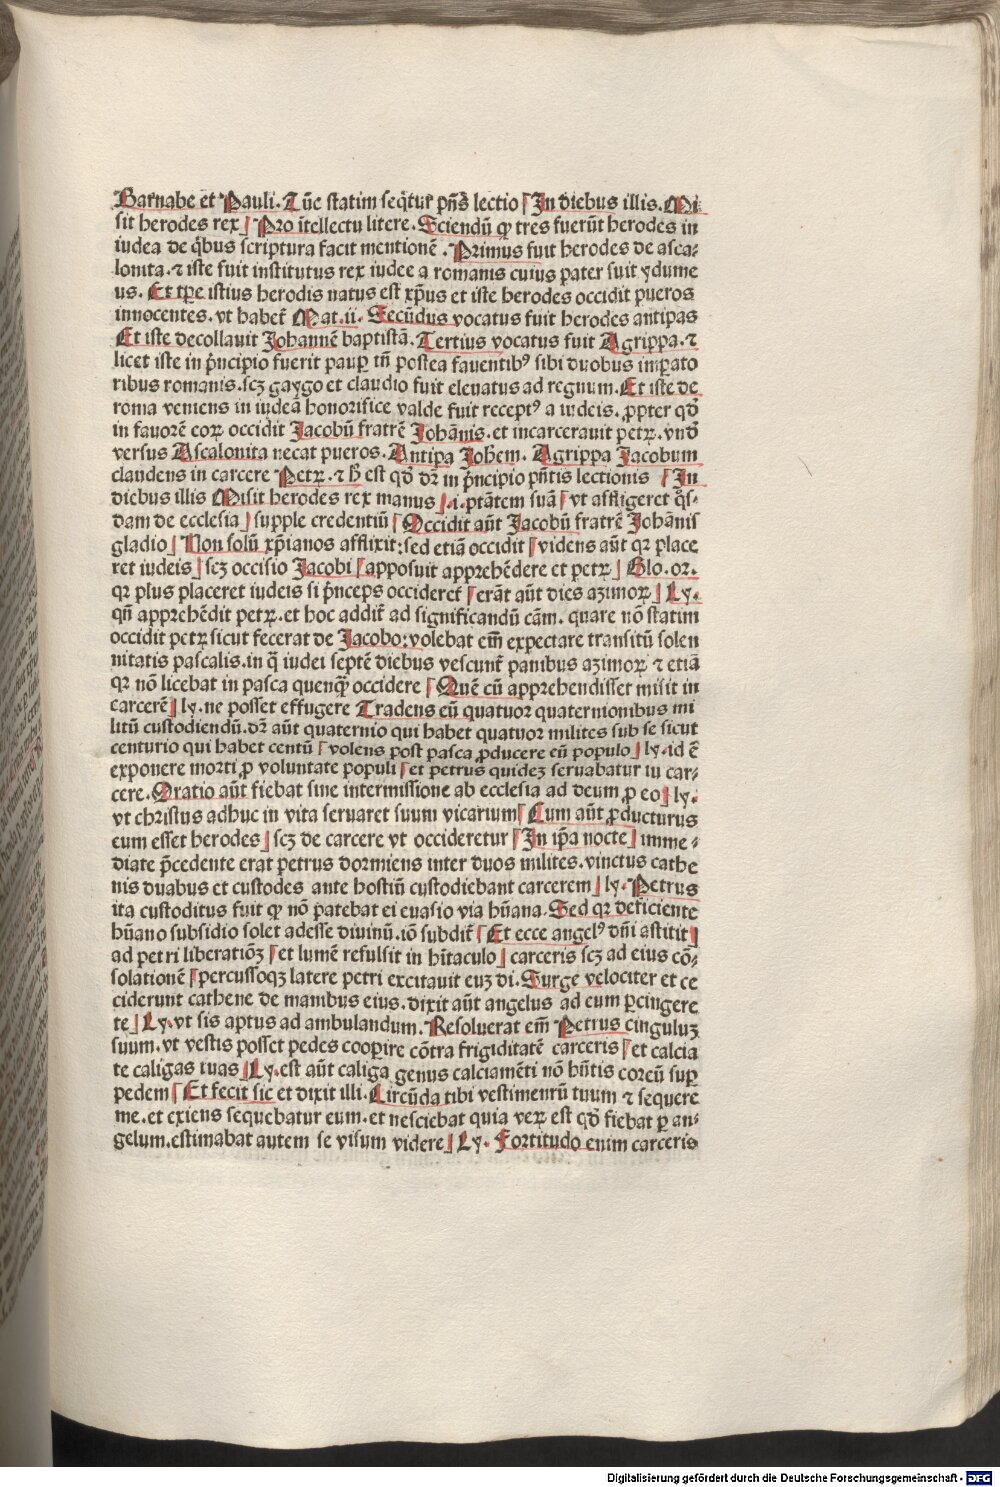 Barnabe et Pauli. Tūc statim seq̄tur p̄ñs lectio In diebus illis. Mi
sit herodes rex Pro ītellectu litere. Sciendū ꝙ tres fuerūt herodes in
iudea de q̄bus scriptura facit mentionē. Primus fuit herodes de asca-
lonita. ⁊ iste fuit institutus rex iudee a romanis cuius pater fuit ydume
us. Et tꝑe istius herodis natus est xp̄us et iste herodes occidit pueros
innocentes. vt habet̄ Mat. ii. Secūdus vocatus fuit herodes antipas
Et iste decollauit Johannē baptistā. Tertius vocatus fuit Agrippa. ⁊
licet iste in p̄ncipio fuerit pauꝑ tn̄ postea fauentibꝰ sibi duobus imꝑato
ribus romanis. scꝫ gaygo et claudio fuit eleuatus ad regnum. Et iste de
roma veniens in iudeā honorifice valde fuit receptꝰ a iudeis. ꝓpter qd̄
in fauorē eoꝝ occidit Jacobū fratrē Johānis. et incarcerauit petrꝝ. vnd̄
versus Ascalonita necat pueros. Antipa Joh̄em. Agrippa Jacobum
claudens in carcere Petrꝝ. ⁊ h̄ est qd̄ dr̄ in p̄ncipio pn̄tis lectionis In
diebus illis Misit herodes rex manus .i. ptātem suā vt affligeret q̊s-
dam de ecclesia supple credentiū Occidit aūt Jacobū fratrē Johānis
gladio Non solū xp̄ianos afflixit: sed etiā occidit videns aūt qꝛ place
ret iudeis scꝫ occisio Jacobi apposuit apprehēdere et petrꝝ Glo. or.
qꝛ plus placeret iudeis si p̄nceps occideret̄ erāt aūt dies azimoꝝ Ly.
qn̄ apprehēdit petrꝝ. et hoc addit̄ ad significandū cām. quare nō statim
occidit petrꝝ sicut fecerat de Jacobo: volebat em̄ expectare transitū solen
nitatis pascalis. in q̄ iudei septē diebus vescunt̄ panibus azimoꝝ ⁊ etiā
qꝛ nō licebat in pasca quenq̄ occidere Quē cū apprehendisset misit in
carcerē ly. ne posset effugere Tradens eū quatuor quaternionibus mi
litū custodiendū. dr̄ aūt quaternio qui habet quatuor milites sub se sicut
centurio qui habet centū volens post pasca ꝓducere eū populo ly. id ē
exponere morti ꝓ voluntate populi et petrus quidez seruabatur in car-
cere. Oratio aūt fiebat sine intermissione ab ecclesia ad deum ꝓ eo ly.
vt christus adhuc in vita seruaret suum vicarium Cum aūt ꝓducturus
eum esset herodes scꝫ de carcere vt occideretur In ip̄a nocte imme-
diate p̄cedente erat petrus dormiens inter duos milites. vinctus cathe
nis duabus et custodes ante hostiū custodiebant carcerem ly. Petrus
ita custoditus fuit ꝙ nō patebat ei euasio via hūana. Sed qꝛ deficiente
hūano subsidio solet adesse diuinū. iō subdit̄ Et ecce angelꝰ dn̄i astitit
ad petri liberatiōꝫ et lumē refulsit in hītaculo carceris scꝫ ad eius cō-
solationē percussoqꝫ latere petri excitauit euꝫ di. Surge velociter et ce
ciderunt cathene de manibus eius. dixit aūt angelus ad eum ꝑcingere
te Ly. vt sis aptus ad ambulandum. Resoluerat em̄ Petrus cinguluꝫ
suum. vt vestis posset pedes cooꝑire cōtra frigiditatē carceris et calcia
te caligas tuas Ly. est aūt caliga genus calciamēti nō hn̄tis coreū suꝑ
pedem Et fecit sic et dixit illi. Circūda tibi vestimentū tuum ⁊ sequere
me. et exiens sequebatur eum. et nesciebat quia veꝝ est qd̄ fiebat ꝑ an-
gelum. estimabat autem se visum videre Ly. Fortitudo enim carceris
Digitalisierung gefördert durch die Deutsche Forschungsgemeinschaft - DFG